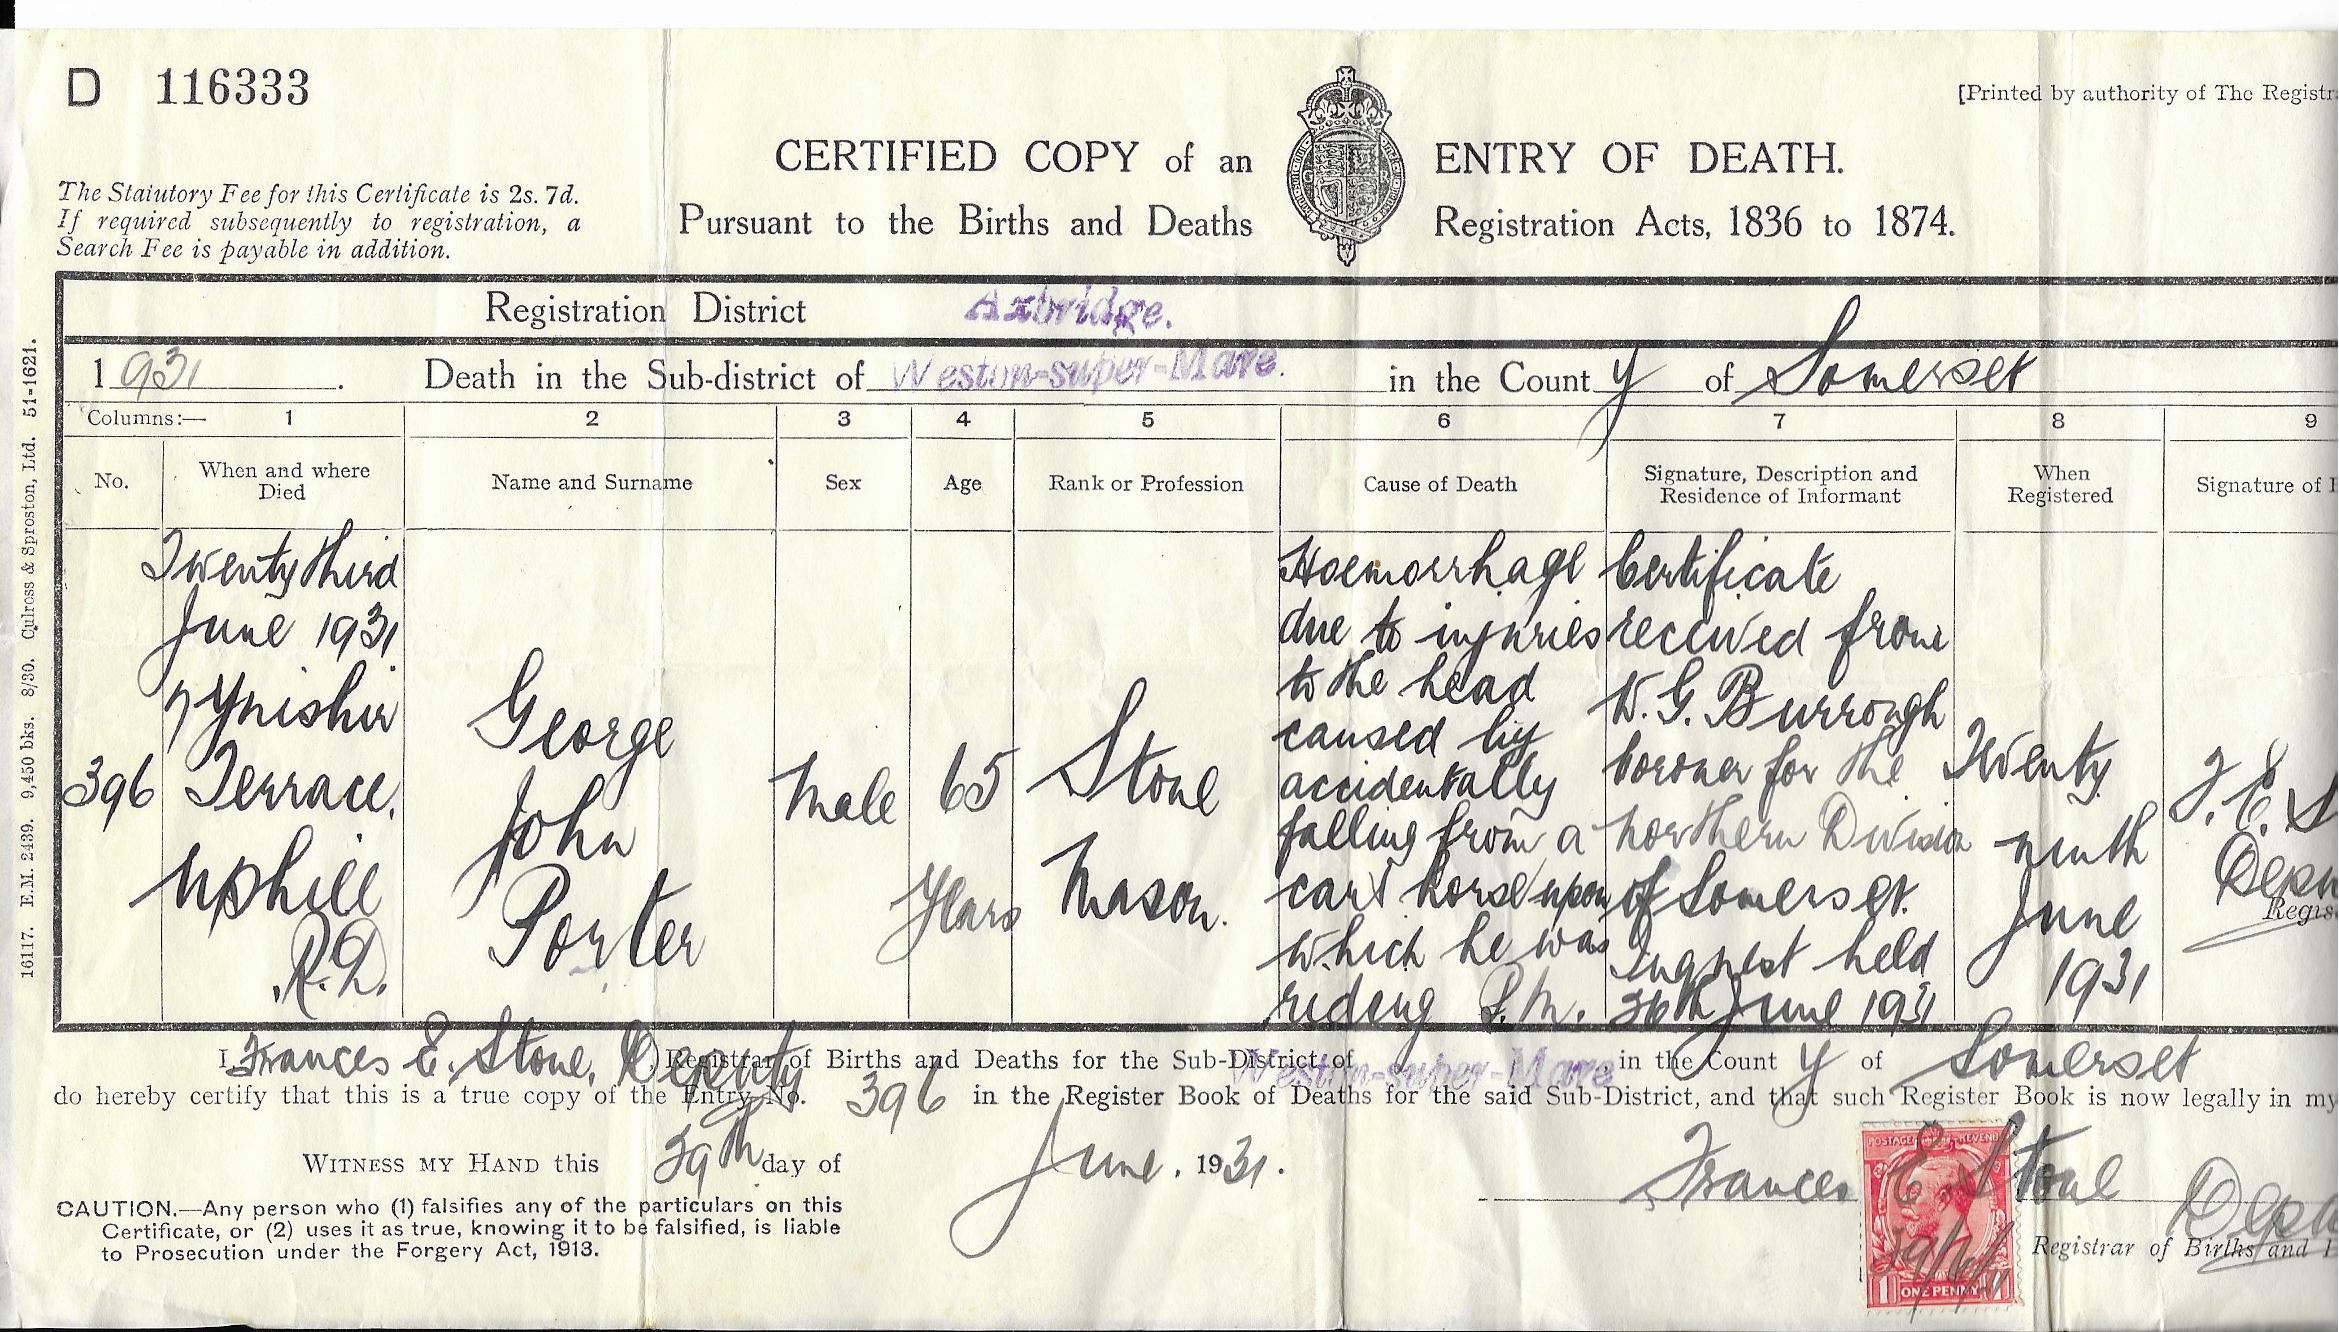 D 116333
[Printed by authority of The Registr
CERTIFIED COPY of an ENTRY OF DEATH.
The Statutory Fee for this Certificate is 2s. 7d.
If required subsequently to registration, a
Search Fee is payable in addition.
Pursuant to the Births and Deaths Registration Acts, 1836 to 1874.
Registration District Axbridge.
1931. Death in the Sub-district of Weston-super-Mare. in the County of Somerset
Columns:— 1 2 3 4 5 6 7 8 9
No.
When and where
Died
Name and Surname
Sex
Age
Rank or Profession
Cause of Death
Signature, Description and
Residence of Informant
When
Registered
Signature of
396
Twenty third
June 1931
7 Ynishir
Terrace.
Uphill
R.D.
George
John
Porter
Male
65
Years
Stone
Mason.
Haemorrhage
due to injuries
to the head
caused by
accidentally
falling from a
cart horse upon
which he was
riding P.M.
Certificate
received from
W. G. Burrough
Coroner for the
Northern Division
of Somerset.
Inquest held
26th June 1931
Twenty
ninth
June
1931
F. E. S
Depu
Regis
I, Frances E. Stone, Deputy Registrar of Births and Deaths for the Sub-District of Weston-super-Mare in the County of Somerset
do hereby certify that this is a true copy of the Entry No. 396 in the Register Book of Deaths for the said Sub-District, and that such Register Book is now legally in my
WITNESS MY HAND this 29th day of June. 1931.
Frances E Stone Depu
Registrar of Births and
CAUTION.—Any person who (1) falsifies any of the particulars on this
Certificate, or (2) uses it as true, knowing it to be falsified, is liable
to Prosecution under the Forgery Act, 1913.
POSTAGE REVENUE
29/6/31
1 ONE PENNY 1
16117. E.M. 2439. 9,450 bks. 8/30. Culross & Sproston, Ltd. 51-1621.